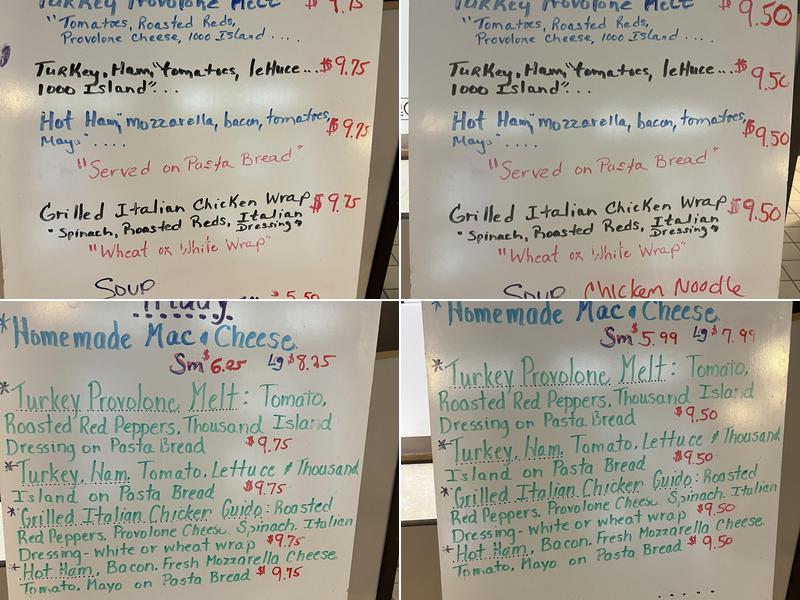 Turkey Provolone Melt $9.75
"Tomatoes, Roasted Reds,
Provolone Cheese, 1000 Island ....
Turkey, Ham, "tomatoes, lettuce... $9.75
1000 Island"...
Hot Ham, "mozzarella, bacon, tomatoes, $9.75
Mayo" ....
"Served on Pasta Bread"
Grilled Italian Chicken Wrap $9.75
"Spinach, Roasted Reds, Italian
Dressing"
"Wheat or White Wrap"
Soup
5.50
Turkey Provolone Melt $9.50
"Tomatoes, Roasted Reds,
Provolone Cheese, 1000 Island ....
Turkey, Ham, "tomatoes, lettuce... $9.50
1000 Island"...
Hot Ham, "mozzarella, bacon, tomatoes, $9.50
Mayo" ....
"Served on Pasta Bread"
Grilled Italian Chicken Wrap $9.50
"Spinach, Roasted Reds, Italian
Dressing"
"Wheat or White Wrap"
Soup Chicken Noodle
Friday
*Homemade Mac & Cheese
Sm $6.25 Lg $8.25
*Turkey Provolone Melt: Tomato,
Roasted Red Peppers, Thousand Island
Dressing on Pasta Bread $9.75
*Turkey, Ham, Tomato, Lettuce & Thousand
Island on Pasta Bread $9.75
*Grilled Italian Chicken Guido: Roasted
Red Peppers, Provolone Cheese, Spinach, Italian
Dressing - white or wheat wrap $9.75
*Hot Ham, Bacon, Fresh Mozzarella Cheese
Tomato, Mayo on Pasta Bread $9.75
*Homemade Mac & Cheese
Sm $5.99 Lg $7.99
*Turkey Provolone Melt: Tomato,
Roasted Red Peppers, Thousand Island
Dressing on Pasta Bread $9.50
*Turkey, Ham, Tomato, Lettuce & Thousand
Island on Pasta Bread $9.50
*Grilled Italian Chicken Guido: Roasted
Red Peppers, Provolone Cheese, Spinach, Italian
Dressing - white or wheat wrap $9.50
*Hot Ham, Bacon, Fresh Mozzarella Cheese
Tomato, Mayo on Pasta Bread $9.50